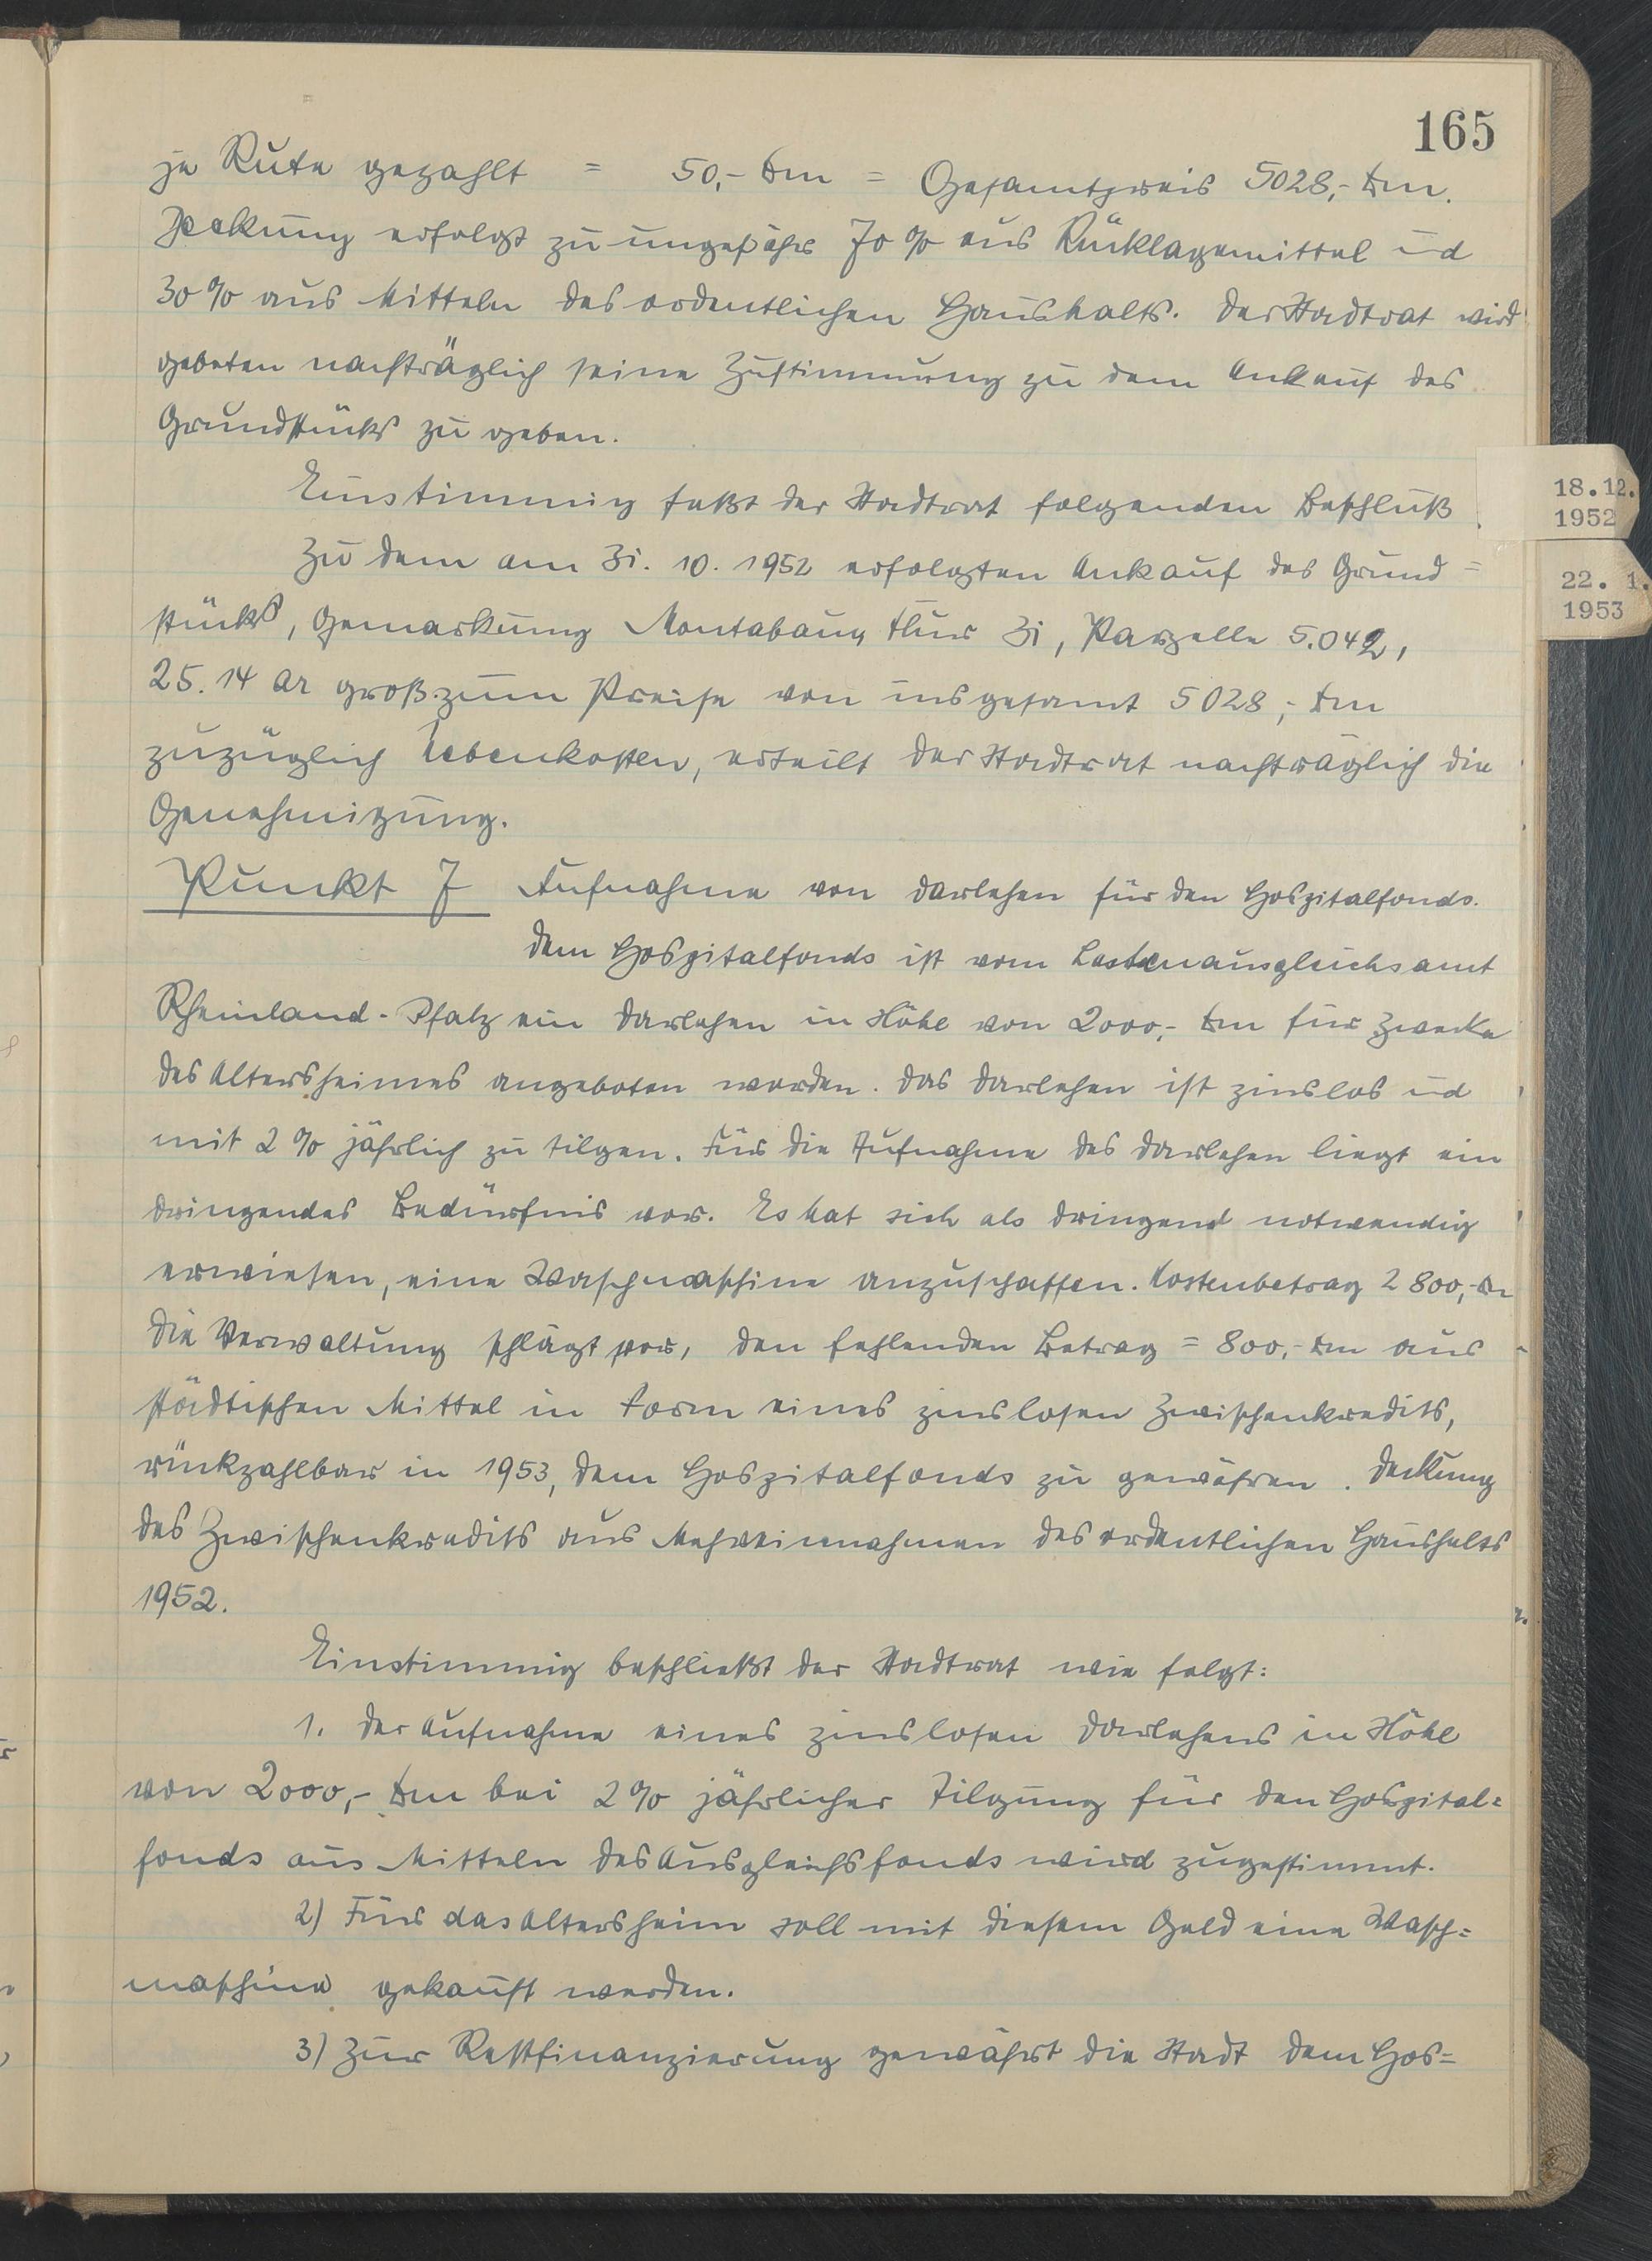 165
je Rute gezahlt = 50,- Dm = Gesamtpreis 5028,- Dm.
Deckung erfolgt zu ungefähr 70 % aus Rücklagemittel ud
30 % aus Mitteln des ordentlichen Haushalts. Der Stadtrat wird
gebeten nachträglich seine Zustimmung zu dem Ankauf des
Grundstücks zu geben.
Einstimmig faßt der Stadtrat folgenden Beschluß
18.12.
1952
Zu dem am 31. 10. 1952 erfolgten Ankauf des Grund=
22. 1.
1953
stücks, Gemarkung Montabaur, Flur 31, Parzelle 5.042,
25.14 ar groß zum Preise von insgesamt 5028,- Dm
zuzüglich Nebenkosten, erteilt der Stadtrat nachträglich die
Genehmigung.
Punkt 7 Aufnahme von Darlehen für den Hospitalfonds.
Dem Hospitalfonds ist vom Lastenausgleichsamt
Rheinland-Pfalz ein Darlehen in Höhe von 2000,- Dm für Zwecke
des Altersheimes angeboten worden. Das Darlehen ist zinslos ud
mit 2 % jährlich zu tilgen. Für die Aufnahme des Darlehen liegt ein
dringendes Bedürfnis vor. Es hat sich als dringend notwendig
erwiesen, eine Waschmaschine anzuschaffen. Kostenbetrag 2800,- Dm
Die Verwaltung schlägt vor, den fehlenden Betrag = 800,- Dm aus
städtischen Mittel in Form eines zinslosen Zwischenkredits,
rückzahlbar in 1953, dem Hospitalfonds zu gewähren. Deckung
des Zwischenkredits aus Mehreinnahmen des ordentlichen Haushalts
1952.
Einstimmig beschließt der Stadtrat wie folgt:
1. Der Aufnahme eines zinslosen Darlehens in Höhe
von 2000,- Dm bei 2 % jährlicher Tilgung für den Hospital=
fonds aus Mitteln des Ausgleichsfonds wird zugestimmt.
2) Für das Altersheim soll mit diesem Geld eine Wasch=
maschine gekauft werden.
3) Zur Restfinanzierung gewährt die Stadt dem Hos=